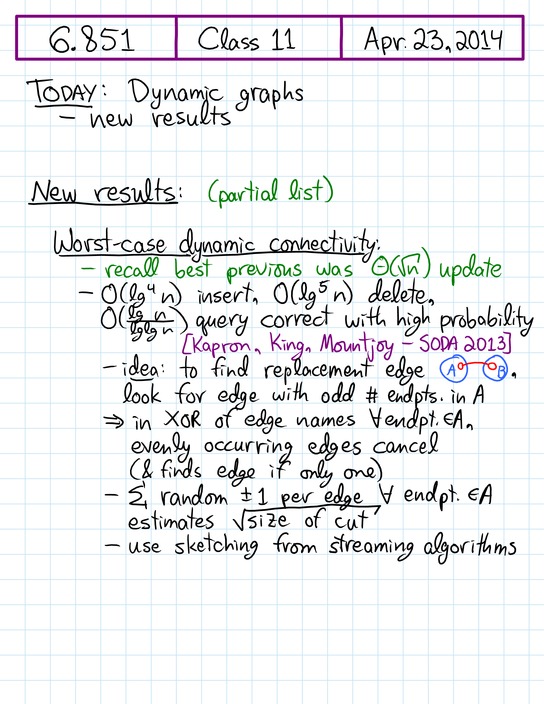 6.851 Class 11 Apr. 23, 2014
TODAY: Dynamic graphs
– new results
New results: (partial list)
Worst-case dynamic connectivity:
– recall best previous was O(√n) update
– O(lg⁴ n) insert, O(lg⁵ n) delete,
O(lg n / lglg n) query correct with high probability
[Kapron, King, Mountjoy – SODA 2013]
– idea: to find replacement edge A B,
look for edge with odd # endpts. in A
⇒ in XOR of edge names ∀ endpt. ∈ A,
evenly occurring edges cancel
(& finds edge if only one)
– Σ random ±1 per edge ∀ endpt. ∈ A
estimates √size of cut
– use sketching from streaming algorithms